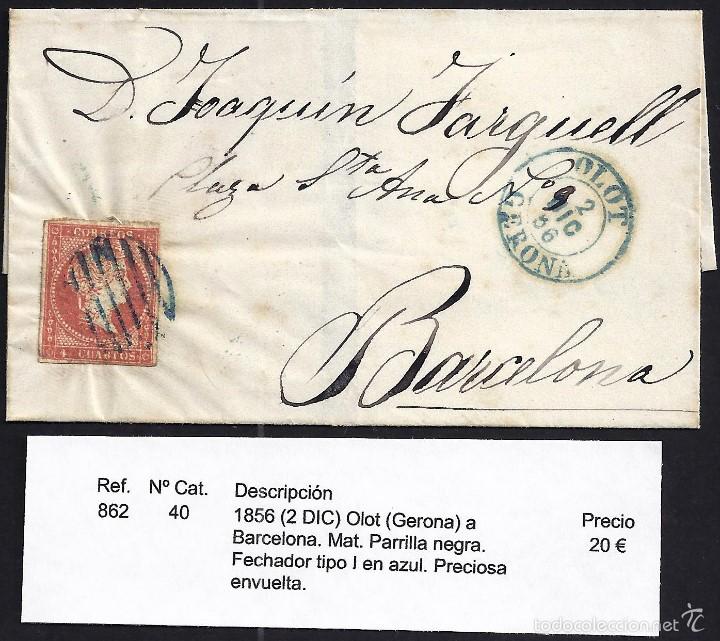 D. Joaquín Farguell
Plaza Sta Ana Nº 9
OLOT
2
DIC
56
GERONA
CORREOS
4 CUARTOS
Barcelona
Ref. Nº Cat. Descripción
862 40 1856 (2 DIC) Olot (Gerona) a
Barcelona. Mat. Parrilla negra.
Fechador tipo I en azul. Preciosa
envuelta.
Precio
20 €
todocoleccion.net